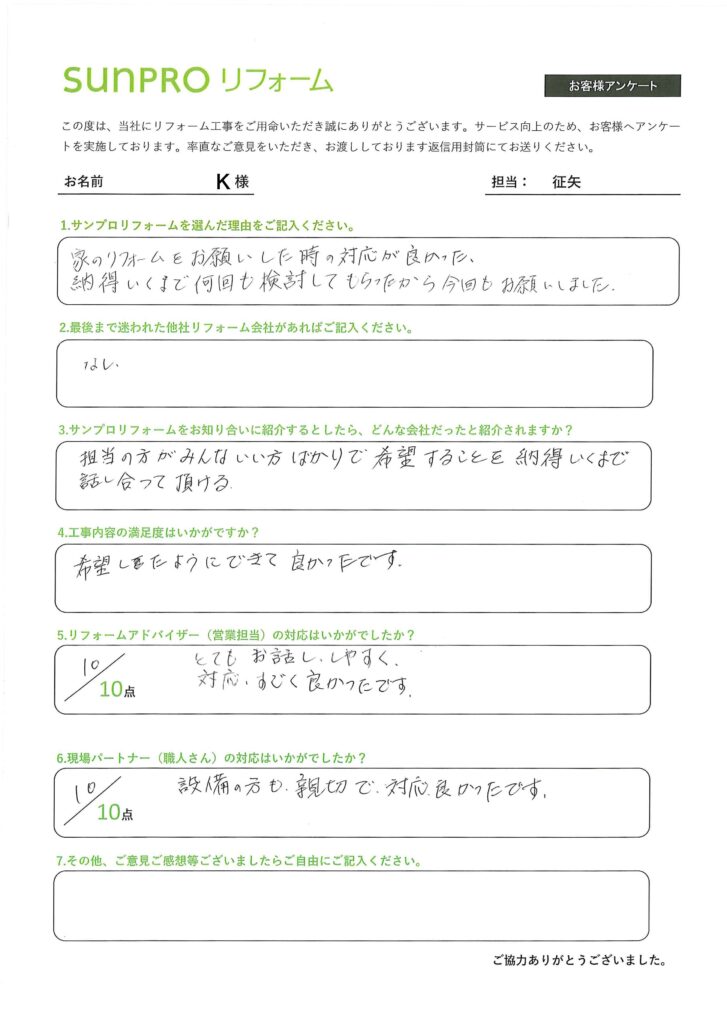 SUNPRO リフォーム
お客様アンケート
この度は、当社にリフォーム工事をご用命いただき誠にありがとうございます。サービス向上のため、お客様へアンケー
トを実施しております。率直なご意見をいただき、お渡ししております返信用封筒にてお送りください。
お名前 K 様 担当： 征矢
1.サンプロリフォームを選んだ理由をご記入ください。
家のリフォームをお願いした時の対応が良かった、
納得いくまで何回も検討してもらったから今回もお願いしました.
2.最後まで迷われた他社リフォーム会社があればご記入ください。
なし.
3.サンプロリフォームをお知り合いに紹介するとしたら、どんな会社だったと紹介されますか？
担当の方がみんないい方ばかりで希望することを納得いくまで
話し合って頂ける.
4.工事内容の満足度はいかがですか？
希望したようにできて良かったです.
5.リフォームアドバイザー（営業担当）の対応はいかがでしたか？
10/10点
とてもお話し、しやすく、
対応、すごく良かったです.
6.現場パートナー（職人さん）の対応はいかがでしたか？
10/10点
設備の方も、親切で、対応、良かったです.
7.その他、ご意見ご感想等ございましたらご自由にご記入ください。
ご協力ありがとうございました。